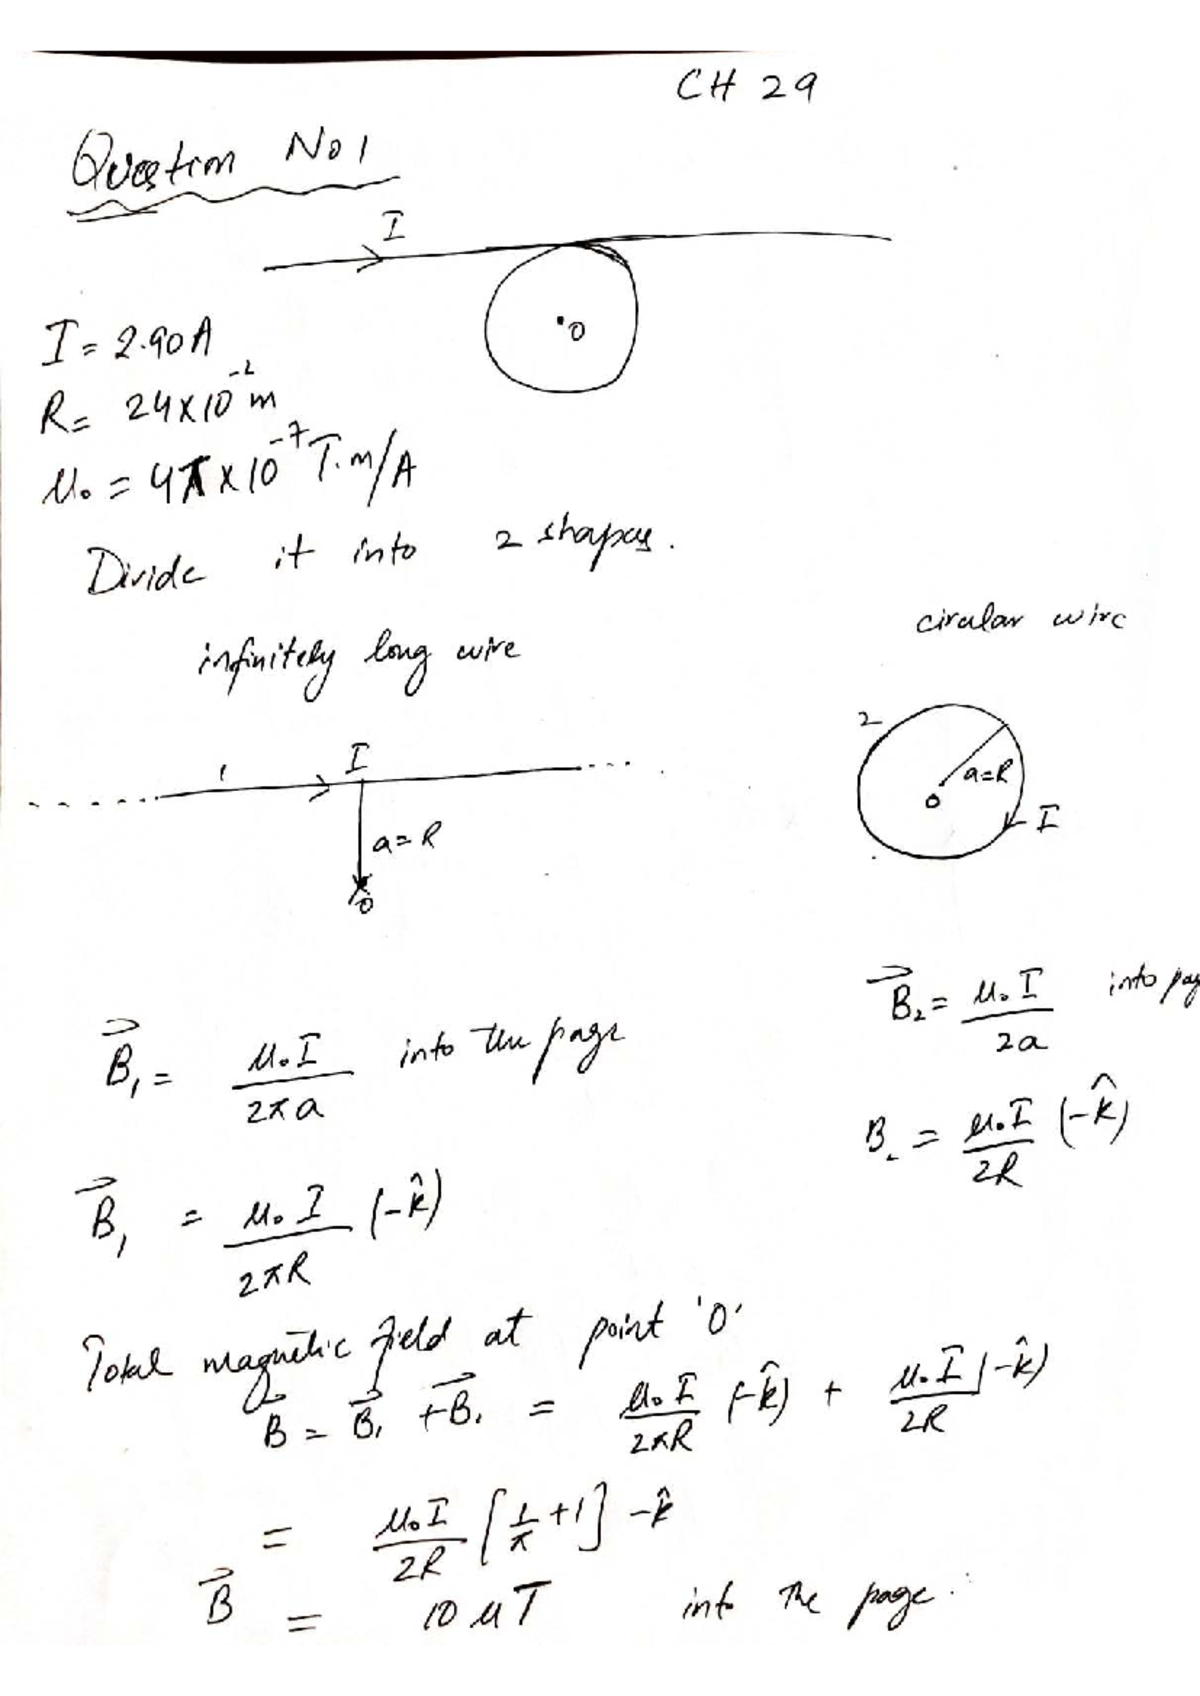 CH 29
Question No 1
I
O
I = 2.90A
R = 24×10⁻² m
μ₀ = 4π×10⁻⁷ T.m/A
Divide it into 2 shapes.
circular wire
infinitely long wire
2
1 I
a=R
a=R
O
I
O
B⃗₂ = μ₀I/2a into pag
B⃗₁ = μ₀I/2πa into the page
B₂ = μ₀I/2R (-k̂)
B⃗₁ = μ₀I/2πR (-k̂)
Total magnetic field at point 'O'
B⃗ = B⃗₁ + B⃗₁ = μ₀I/2πR (-k̂) + μ₀I/2R (-k̂)
= μ₀I/2R [1/π + 1] -k̂
B⃗ = 10 μT into the page.